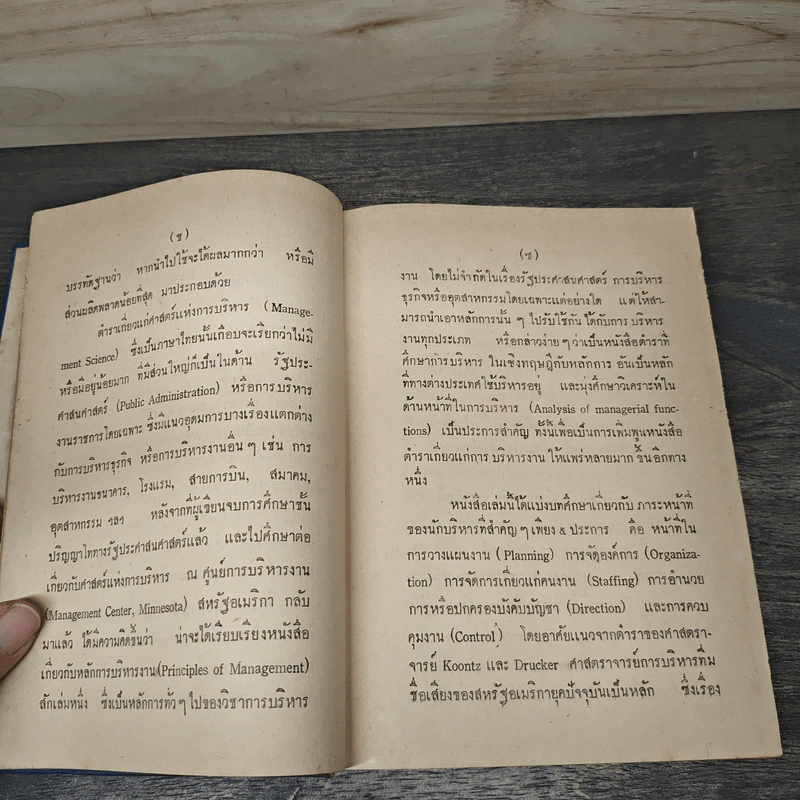 (ช)
บรรทัดฐานว่า หากนำไปใช้จะได้ผลมากกว่า หรือมี
ส่วนผลิตพลาดน้อยที่สุด มาประกอบด้วย
ตำราเกี่ยวแก่ศาสตร์แห่งการบริหาร (Manage-
ment Science) ซึ่งเป็นภาษาไทยนั้นเกือบจะเรียกว่าไม่มี
หรือมีอยู่น้อยมาก ที่มีส่วนใหญ่ก็เป็นในด้าน รัฐประ-
ศาสนศาสตร์ (Public Administration) หรือการบริหาร
งานราชการโดยเฉพาะ ซึ่งมีแนวอุดมการบางเรื่องแตกต่าง
กับการบริหารธุรกิจ หรือการบริหารงานอื่น ๆ เช่น การ
บริหารงานธนาคาร, โรงแรม, สายการบิน, สมาคม,
อุตสาหกรรม ฯลฯ หลังจากที่ผู้เขียนจบการศึกษาชั้น
ปริญญาโททางรัฐประศาสนศาสตร์แล้ว และไปศึกษาต่อ
เกี่ยวกับศาสตร์แห่งการบริหาร ณ ศูนย์การบริหารงาน
(Management Center, Minnesota) สหรัฐอเมริกา กลับ
มาแล้ว ได้มีความคิดขึ้นว่า น่าจะได้เรียบเรียงหนังสือ
เกี่ยวกับหลักการบริหารงาน(Principles of Management)
สักเล่มหนึ่ง ซึ่งเป็นหลักการทั่ว ๆ ไปของวิชาการบริหาร
(ซ)
งาน โดยไม่จำกัดในเรื่องรัฐประศาสนศาสตร์ การบริหาร
ธุรกิจหรืออุตสาหกรรมโดยเฉพาะแต่อย่างใด แต่ให้สา-
มารถนำเอาหลักการนั้น ๆ ไปรับใช้กัน ได้กับการ บริหาร
งานทุกประเภท หรือกล่าวง่าย ๆ ว่าเป็นหนังสือตำราที่
ศึกษาการบริหาร ในเชิงทฤษฎีกับหลักการ อันเป็นหลัก
ที่ทางต่างประเทศใช้บริหารอยู่ และมุ่งศึกษาวิเคราะห์ใน
ด้านหน้าที่ในการบริหาร (Analysis of managerial func-
tions) เป็นประการสำคัญ ทั้งนี้เพื่อเป็นการเพิ่มพูนหนังสือ
ตำราเกี่ยวแก่การ บริหารงาน ให้แพร่หลายมาก ขึ้น อีกทาง
หนึ่ง
หนังสือเล่มนี้ได้แบ่งบทศึกษาเกี่ยวกับ ภาระหน้าที่
ของนักบริหารที่สำคัญ ๆ เพียง ๕ ประการ คือ หน้าที่ใน
การวางแผนงาน (Planning) การจัดองค์การ (Organiza-
tion) การจัดการเกี่ยวแก่คนงาน (Staffing) การอำนวย
การหรือปกครองบังคับบัญชา (Direction) และการควบ
คุมงาน (Control) โดยอาศัยแนวจากตำราของศาสตรา-
จารย์ Koontz และ Drucker ศาสตราจารย์การบริหารที่มี
ชื่อเสียงของสหรัฐอเมริกายุคปัจจุบันเป็นหลัก ซึ่งเรื่อง